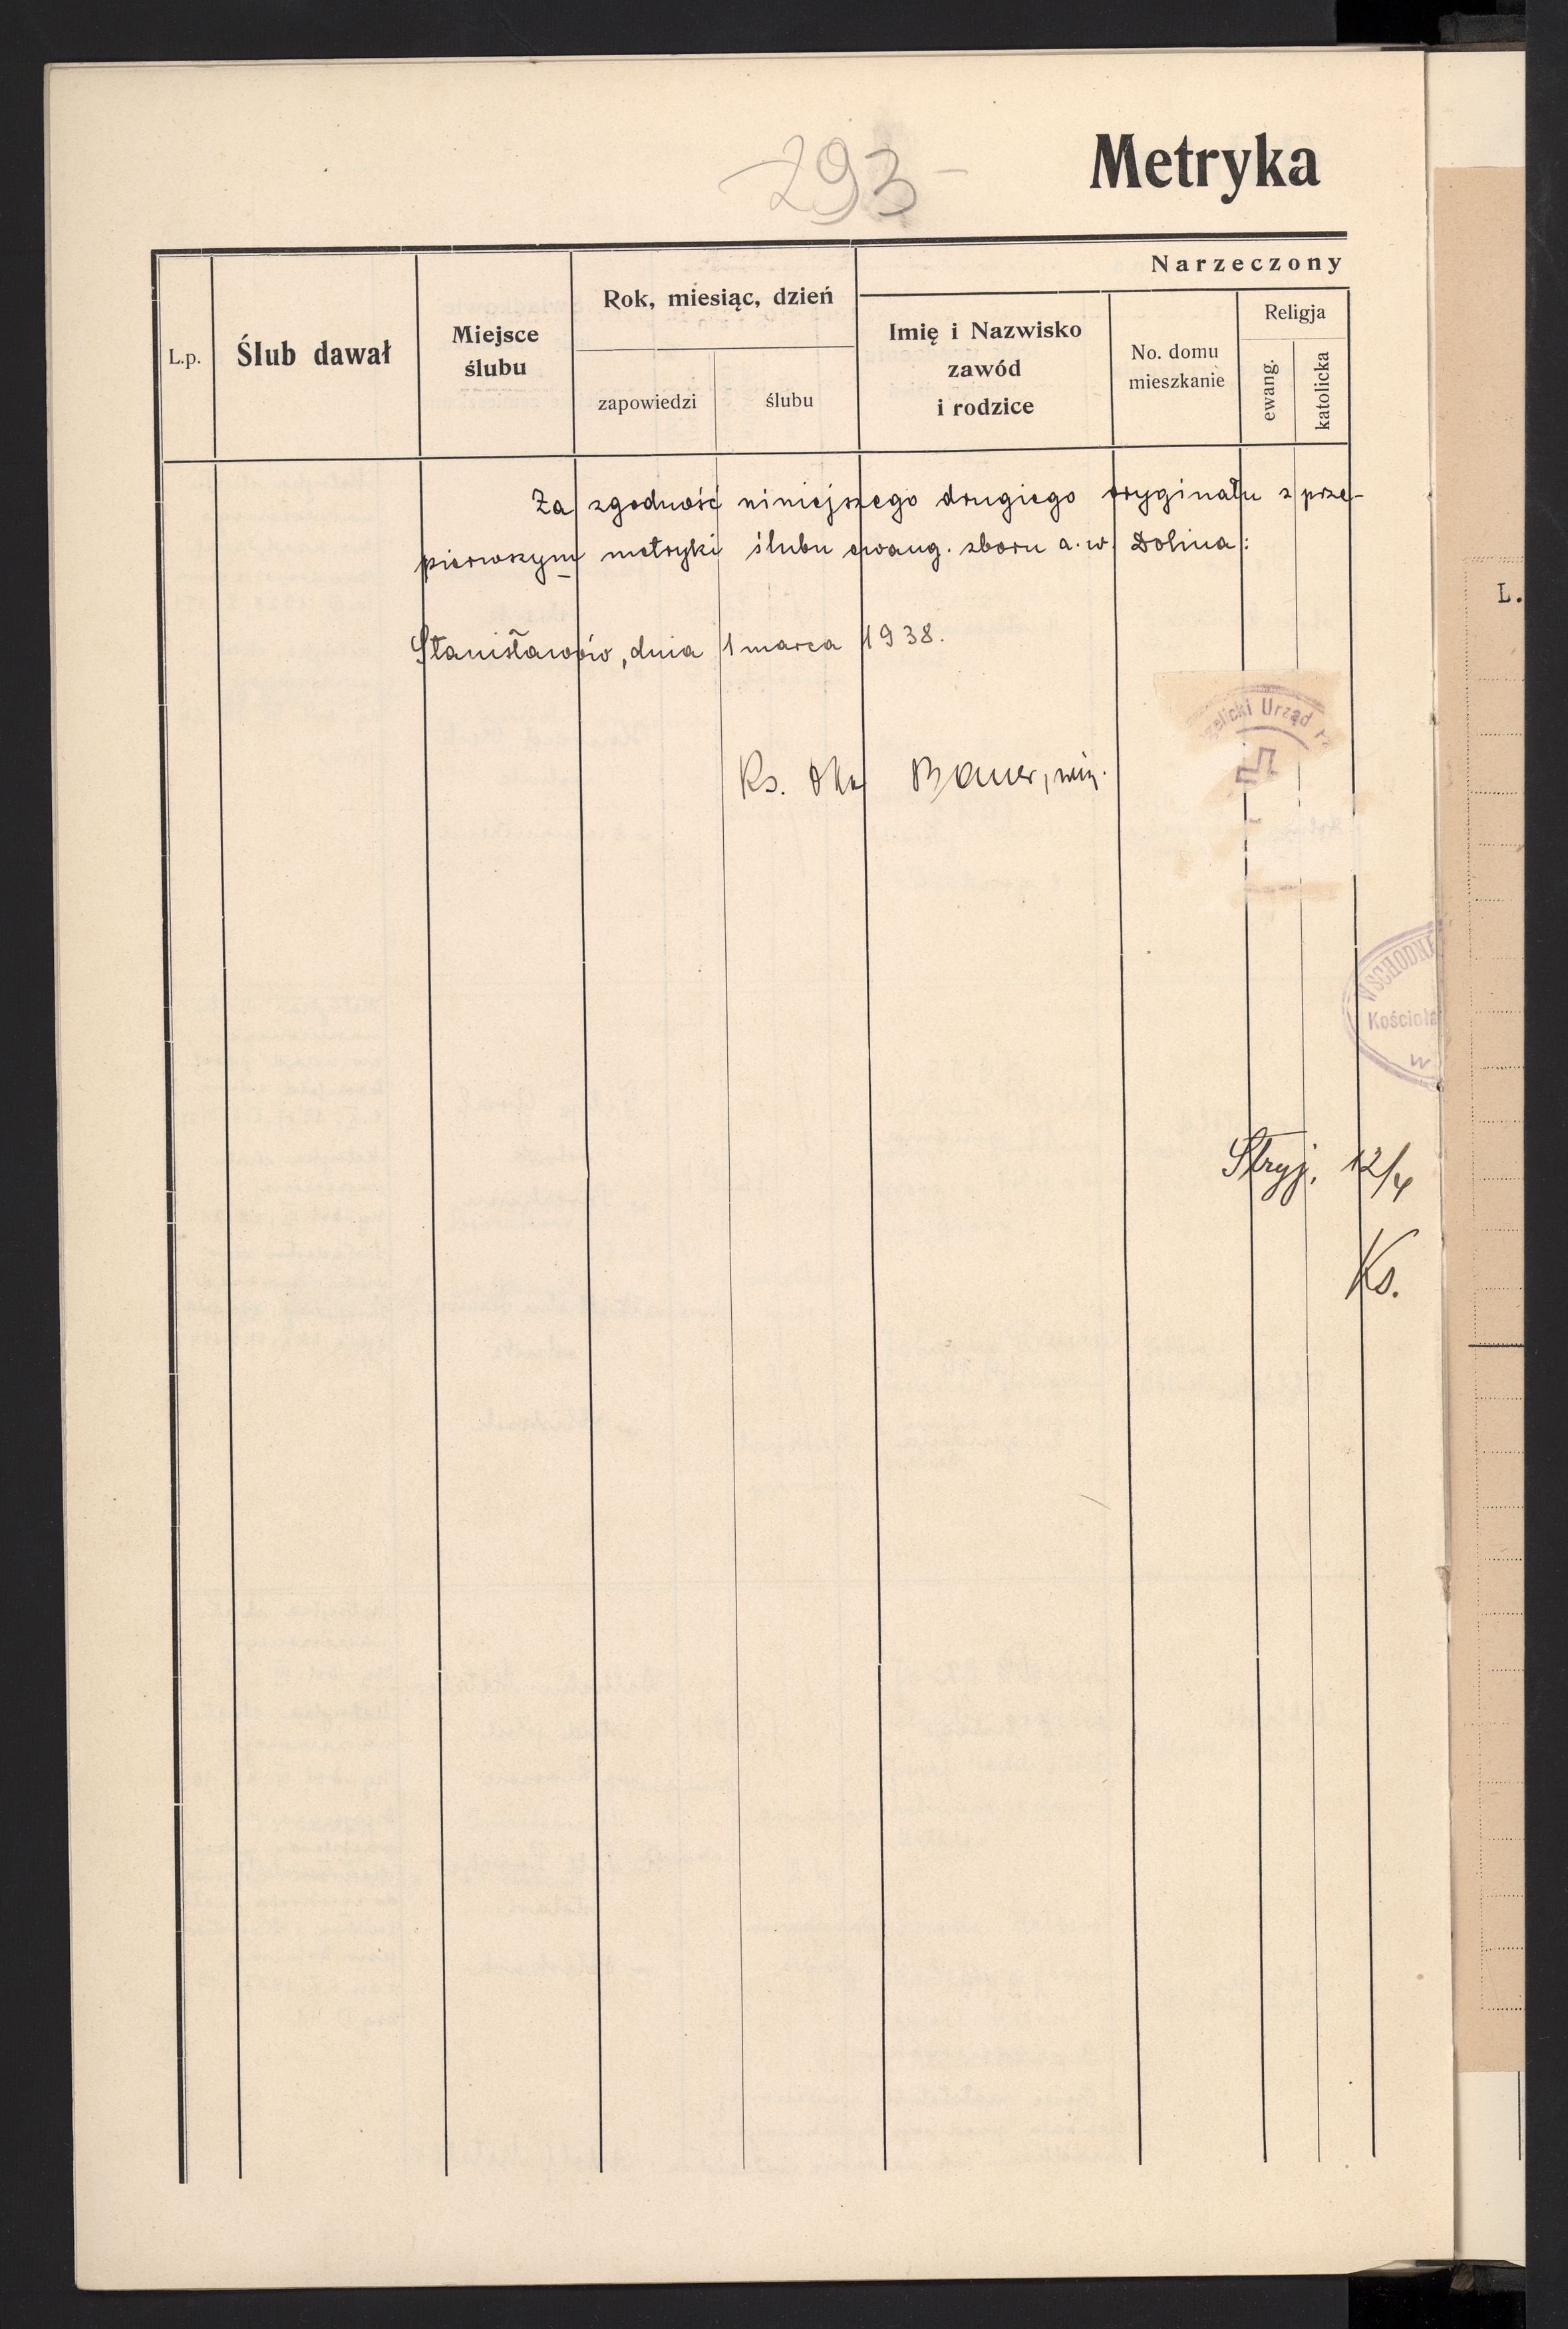 293
Metryka
L.p.
Ślub dawał
Miejsce
ślubu
Rok, miesiąc, dzień
zapowiedzi
ślubu
Narzeczony
Imię i Nazwisko
zawód
i rodzice
No. domu
mieszkanie
Religja
ewang.
katolicka
Za zgodność niniejszego drugiego oryginału z prze-
pierwszym metryki ślubu ewang. zboru a. w. Dolina:
Stanisławów, dnia 1 marca 1938.
Ks. Bauer,
gelicki Urząd
WSCHODNI
Kościoła
w
Stryj, 12/4
Ks.
L.